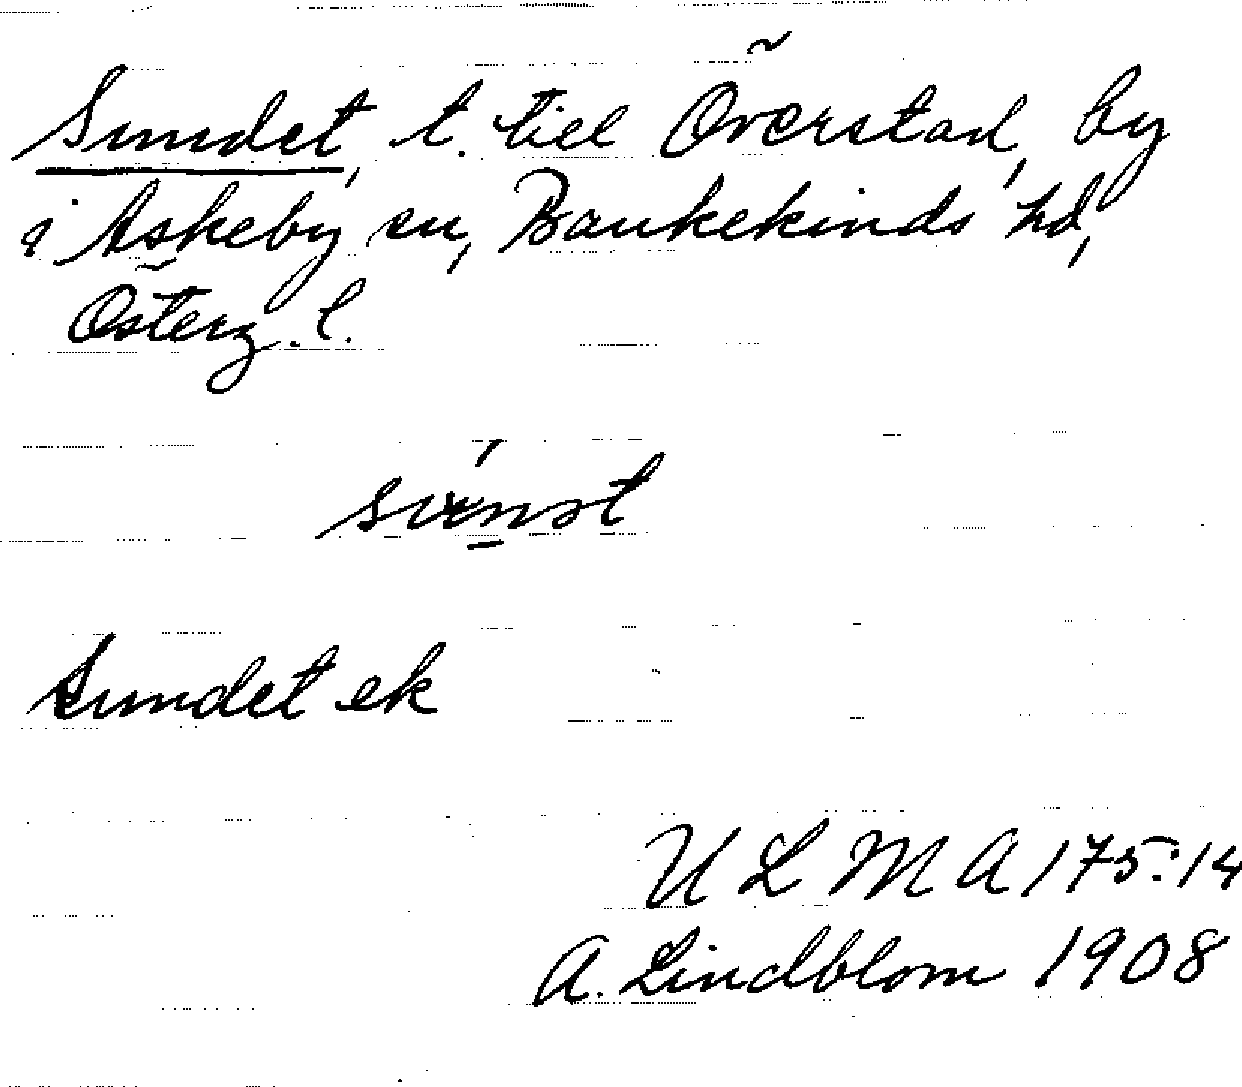 Sundet, t. till Överstad, by
i Askeby sn, Bankekinds hd,
Österg. l.
Sundet ek
U L M A 175:14
A. Lindblom 1908